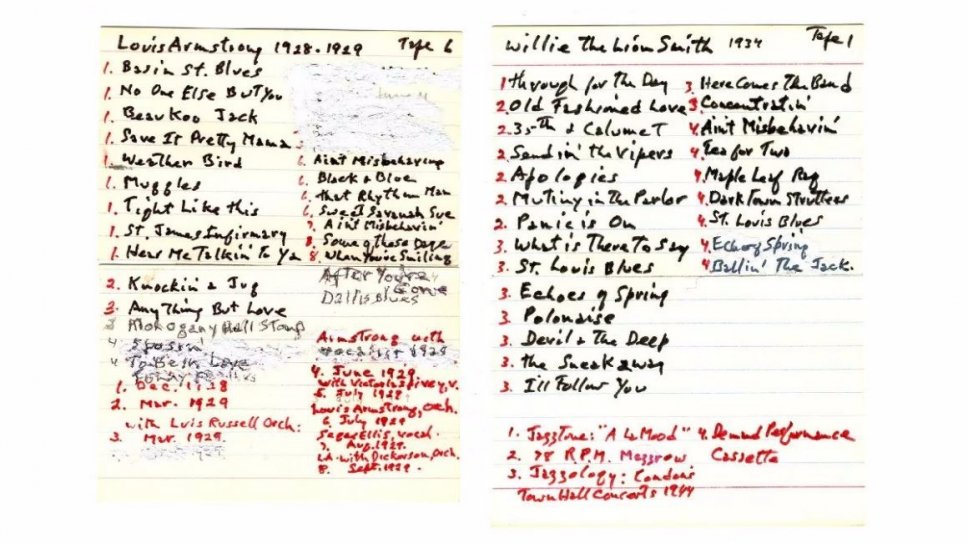 Louis Armstrong 1928-1929 Tape 6
1. Basin St. Blues
1. No One Else But You
1. Beau Koo Jack
1. Save It Pretty Mama
1. Weather Bird
1. Muggles
1. Tight Like this
1. St. James Infirmary
1. Hear Me Talkin' To Ya
2. Knockin' a Jug
3. AnyThing But Love
3 Mahogany Hall Stomp
4 Sposin'
4 To Be In Love
Funny Feathers
1. Dec. 1928
2. Mar. 1929
with Luis Russell Orch:
3. Mar. 1929.
6. Ain't Misbehaving
6. Black & Blue
6. that Rhythm Man
6. Sweet Savanah Sue
7. Ain't Misbehavin'
8. Some of these Days
8. When You're Smiling
After You've Gone
Dallis Blues
Armstrong with
Vocalist 1929
4. June 1929.
with Victoria Spivey, v.
5. July 1928
Louis Armstrong, Orch.
6. July 1929
Seger Ellis, vocal.
7. Aug. 1929.
LA. with Dickerson, Orch.
8. Sept. 1929.
Willie the Lion Smith 1934 Tape 1
1 through for the Day
2. Old Fashioned Love
2. 35th & Calumet
2. Sendin' the Vipers
2. Apologies
2. Mutiny in the Parlor
2. Panic is On
3. What is There To Say
3. St. Louis Blues
3. Echoes of Spring
3. Polonaise
3. Devil & The Deep
3. the Sneakaway
3. I'll Follow You
3. Here Comes The Band
3. Concentratin'
4. Ain't Misbehavin'
4. Tea for Two
4. Maple Leaf Rag
4. DarkTown Strutters
4. St. Louis Blues
4. Echo of Spring
4. Ballin' The Jack.
1. JazzTone: "A La Mood"
2. 78 R.P.M. Mezzrow
3. Jazzology: Condon's
Town Hall Concerts 1944
4. Demand Performance
Cassette